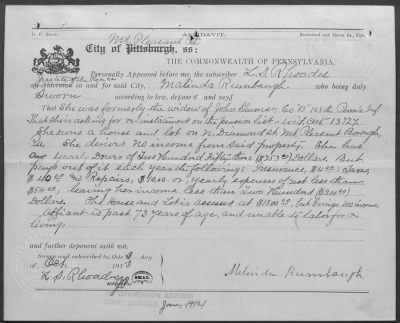 AFFIDAVIT.
Mt. Pleasant Pa
City of Pittsburgh, ss:
THE COMMONWEALTH OF PENNSYLVANIA.
Personally Appeared before me, the subscriber L. S. Rhoades
Justice of the Peace
an Alderman in and for said City, Melinda Rumbaugh, who being duly
Sworn according to law, deposes and says
That She was formerly the widow of John Co B Penn'a Inf
That she is asking for on the pension list - wid. cert 13727.
She owns a house and lot on N. Diamond St Mt. Pleasant Borough
Pa. She derives no income from said property. She has
a yearly Dower of Two Hundred Fifty three Dollars. But
pays out of it each year the following: Insurance, Taxes,
and Repairs, or yearly expenses of not less than
leaving her income less than Two Hundred ($200.00)
Dollars. The House and Lot is assessed at but brings no income
Affiant is past 73 years of age, and unable to labor for a
living.
and further deponent saith not.
Sworn and subscribed to, this 3 day
of Oct 1913
L. S. Rhoades
SEAL
Melinda Rumbaugh
COMMISSION EXPIRES
FIRST MONDAY
Jany 1914